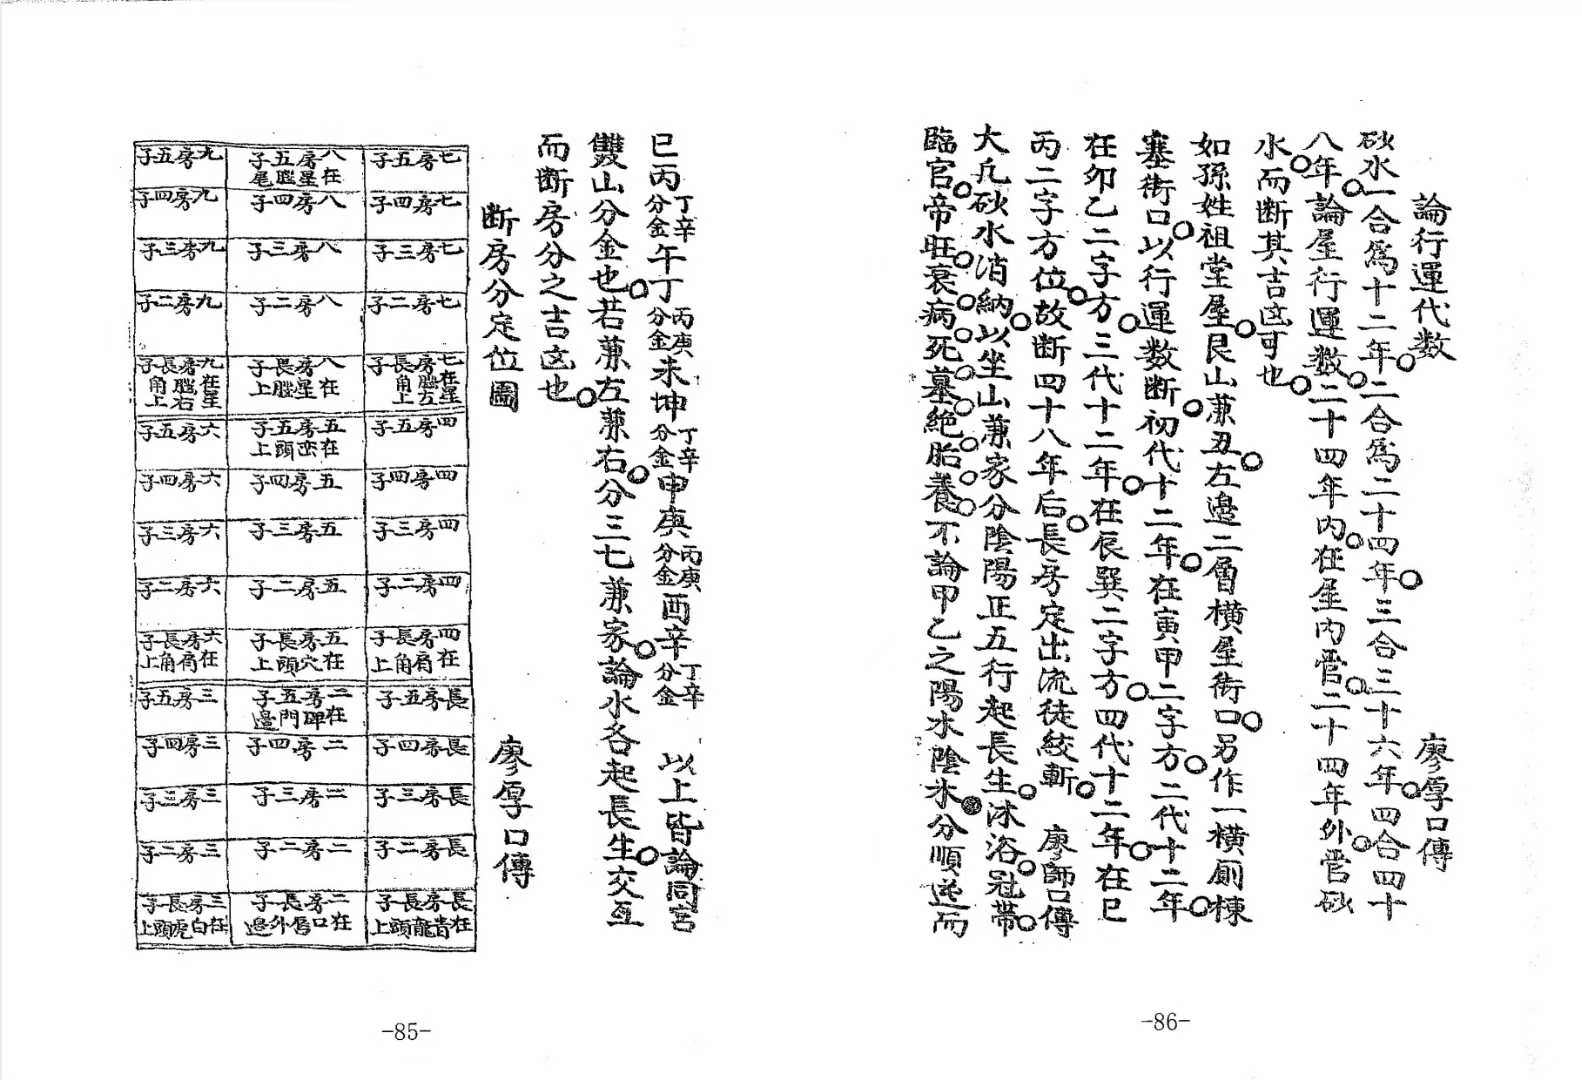 論行運代数　廖厚口傳
砂水一合爲十二年○二合爲二十四年○三合三十六年○四合四十
八年○論屋行運数○二十四年内○在屋内管○二十四年外○管砂
水○而断其吉凶可也○
如孫姓祖堂屋○艮山兼丑○左邊二層横屋衖口○另作一横厠棟
塞衖口○以行運数断○初代十二年○在寅甲二字方○二代十二年○
在卯乙二字方○三代十二年○在辰巽二字方○四代十二年○在巳
丙二字方位○故断四十八年后○長房定出流徒絞斬○　廖師口傳
大凡砂水消納○以坐山兼家分陰陽正五行起長生○沐浴○冠帶○
臨官○帝旺○衰○病○死○墓○絶○胎○養○不論甲乙之陽水陰水分順逆而
巳丙丁辛分金午丁丙庚分金未坤丁辛分金申庚丙庚分金酉辛丁辛分金　以上皆論同宮
雙山分金也○若兼左兼右○分三七兼家○論水各起長生○交互
而断房分之吉凶也○
断房分定位圖　廖厚口傳
七房五子
八房五子在星膛尾
九房五子
七房四子
八房四子
九房四子
七房三子
八房三子
九房三子
七房二子
八房二子
九房二子
七房長子在星膛左角上
八房長子在星膛上
九房長子在星膛右角上
四房五子
五房五子在峦頭上
六房五子
四房四子
五房四子
六房四子
四房三子
五房三子
六房三子
四房二子
五房二子
六房二子
四房長子在肩角上
五房長子在穴頭上
六房長子在肩角上
長房五子
二房五子在碑門邊
三房五子
長房四子
二房四子
三房四子
長房三子
二房三子
三房三子
長房二子
二房二子
三房二子
長房長子在青龍頭上
二房長子在口唇外邊
三房長子在白虎頭上
-86-
-85-